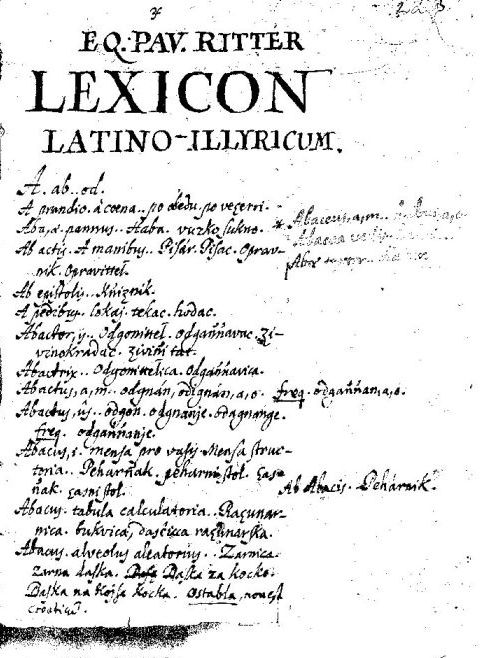 EQ. PAV. RITTER
LEXICON
LATINO-ILLYRICUM.
A. ab. od.
A prandio. à coena. po obedu. po veçerri.
Aba, æ pannus. Haba. vuzko sukno.
Ab actis. A manibus. Pisár. Pisac. Oprav-
nik. Opravittel.
Ab epistolis. Knižnik.
A pedibus. lokaj. tekac. hodac.
Abactor, is. Odgonittel. odgaññavac. ži-
vinokradac. zivini tat.
Abactrix. Odgonittelica. Odgaññavica.
Abactus, a, m. odgnán, odignán, a, o. freq. odgaññan, a, o.
Abactus, us. odgon. odgnanje. odagnange.
freq. odgaññanje.
Abacus, i. mensa pro vasis Mensa struc-
toria. Pehárñak. peharni stol. çaš-
ñak. çašni stol.
Ab Abacis. Pehárnik.
Abacus. tabula calculatoria. Raçunar-
nica. bukvica, daščica raçunarska.
Abacus. alveolus aleatorius. Zarnica.
zarna daska. Daska za kocke.
Daska na kojsa kocka. Ostabla, novest
croaticum.